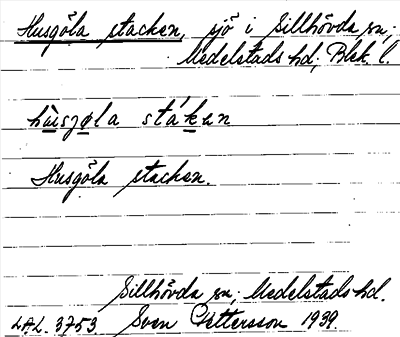 Husgöla stacken, sjö i Sillhövda sn,
Medelstads hd, Blek. l.
hùsjøla stáken
Husgöla stacken.
Sillhövda sn, Medelstads hd.
LAL. 3753 Sven Pettersson 1939.